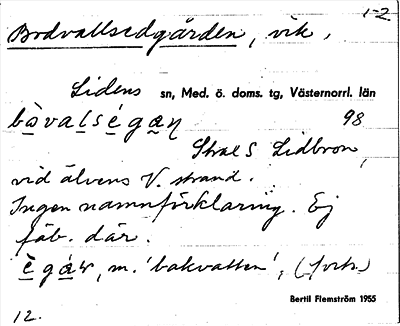 1-2
Bodvallsedgården, vik,
Lidens sn, Med. ö. doms. tg, Västernorrl. län
bòvalségaŋ 98
Strax S Lidbron,
vid älvens V. strand.
Ingen namnförklaring. Ej
fäb. där.
ègáɹ, m. 'bakvatten', (forts.)
Bertil Flemström 1955
12.